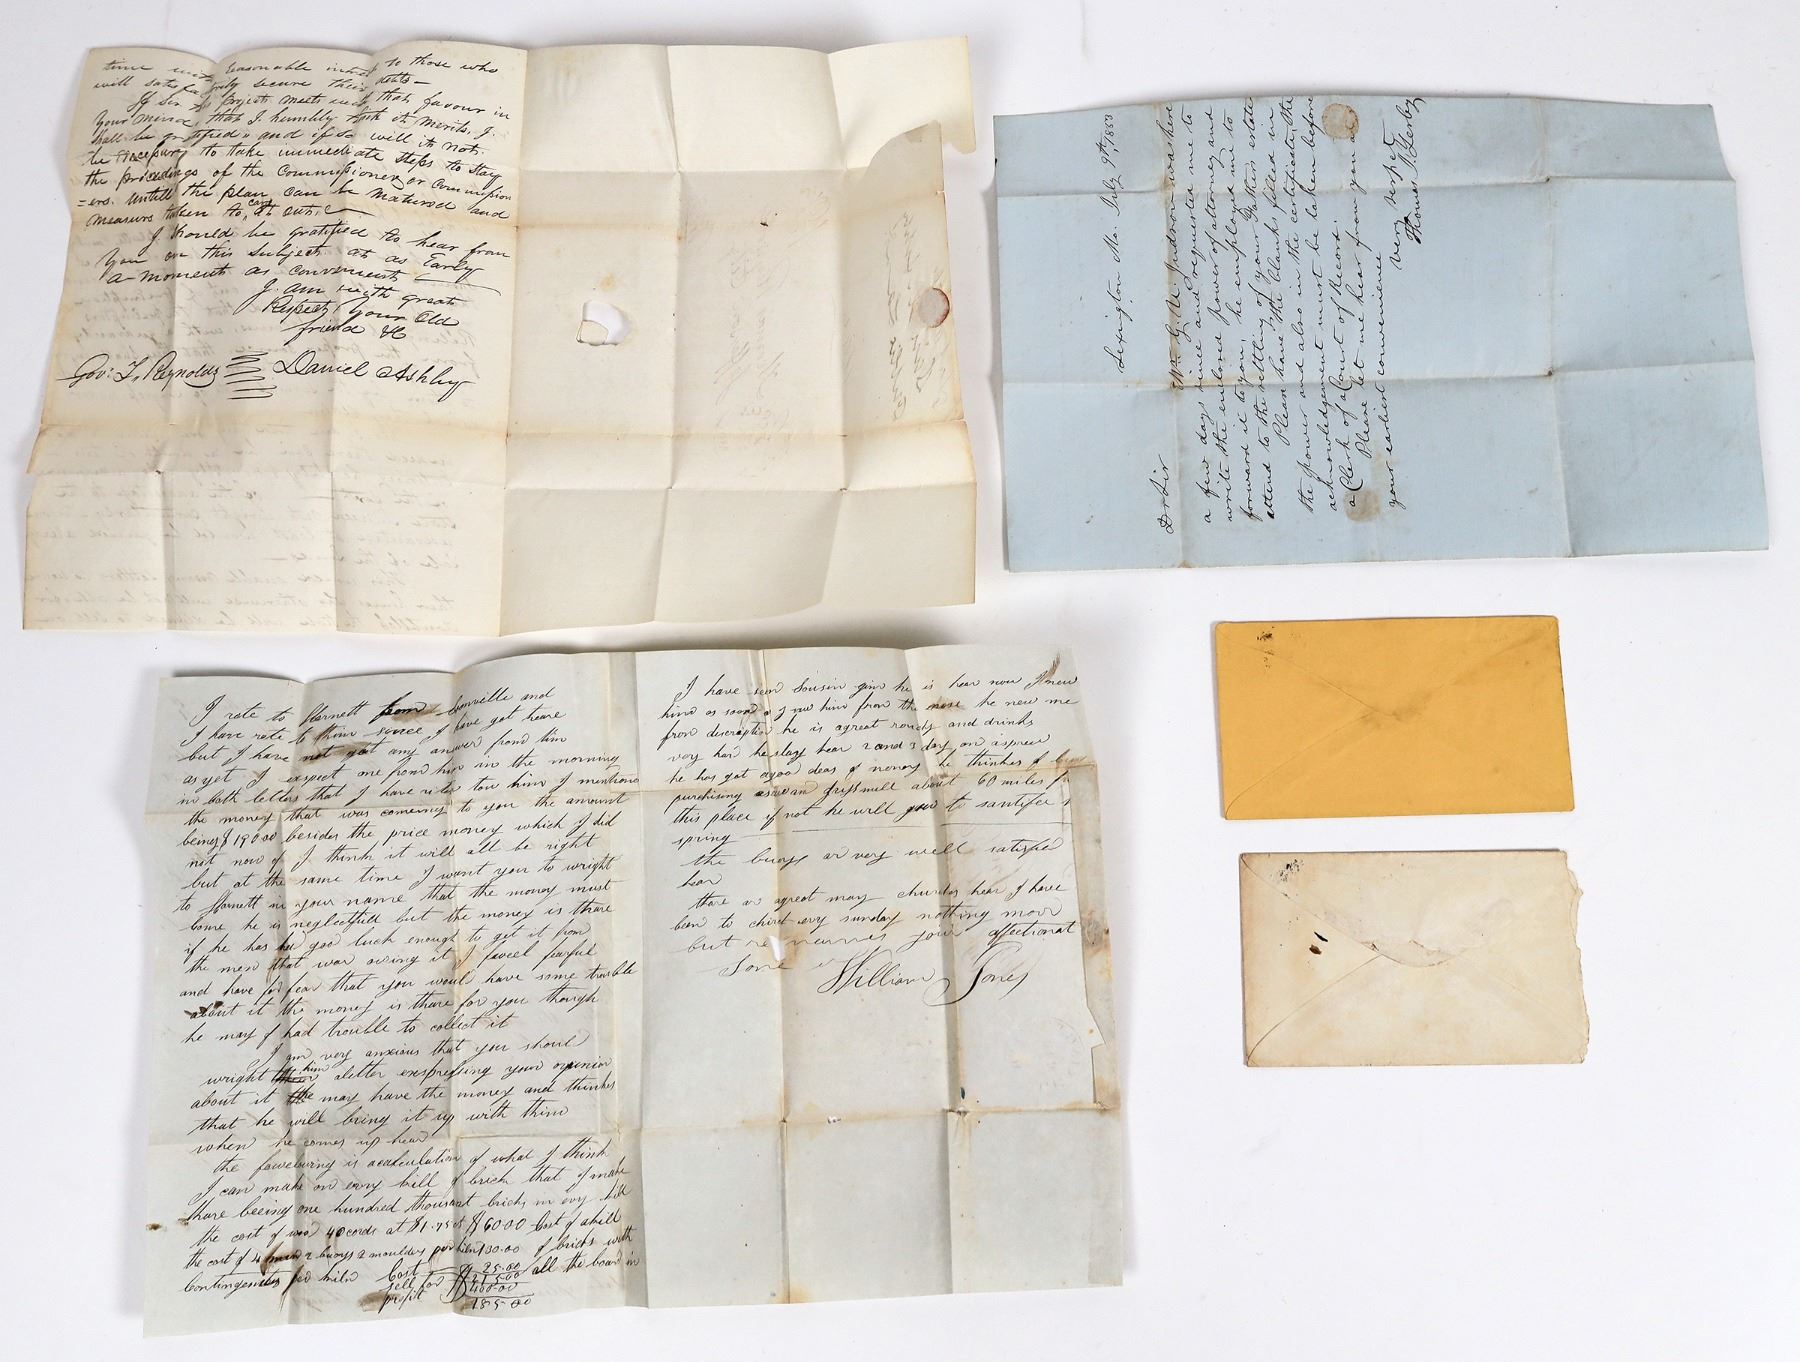 time with reasonable interest to those who
will satisfactorily secure their debts—
If Sir my project meets with that favour in
Your mind, that I humbly think it merits, I
shall be gratified, and if so will it not
be necessary to take immediate steps to stay
the proceedings of the Commissioner or Commission
=ers. untill the plan can be matured and
measures taken to carry it out.—
I Should be gratified to hear from
You on this Subject at as Early
a moment as convenient—
I am with great
Respect, Your Old
friend &C
Gov: T. Reynolds Daniel Ashby
Lexington Mo. July 9th 1853
Dr Sir
Wm. G. U. Judron was here
a few days since and requested me to
write the enclosed Power of attorney and
forward it to you, he employed me to
attend to the settling of your Fathers estate
Please have the blanks filled in
the power and also in the certificate, the
acknowledgement must be taken before
a Clerk of a Court of Record.
Please let me hear from you at
your earliest convenience
very respct
Thomas N. Gerby
I rate to Harnett from bonville and
I have rate to them scince I have got heare
but I have not got any answer from him
as yet I expect one from him in the morning
in both letters that I have riten too him I mentiond
the money that was comeing to you the amount
being $190.00 besides the price money which I did
not now of I think it will all be right
but at the same time I want you to wright
to Harnett in your name that the money must
come he is neglectfull but the money is thare
if he has had good luck enough to get it from
the men that was owing it I faceel fearful
and have for fear that you would have some trouble
about it the money is thare for you though
he may of had trouble to collect it
I am very anxious that you should
wright him a letter exspressing your opinion
about it he may have the money and thinkes
that he will bring it up with him
when he comes up hear
the foweloving is a calculation of what I think
I can make on evry kill of brick that I make
thare beeing one hundred thousant bricks in evry kill
the cost of wood 40 cords at $1.75 ct $60.00 Cost of a kill
the cost of 4 men 2 buoys 2 moulders per kiln 130.00 of bricks with
Contingenties per kiln 25.00 all the board in
Cost 215.00
sell for $400.00
profit 185.00
I have seen Cousin gim he is hear now I knew
him as soon as I saw him from the nose he new me
from discraption he is a great rowdy and drinks
very hard he stays hear 2 and 3 day on a spree
he has got a good deas of money he thinkes of
purchising a saw an grissmill about 60 miles
this place if not he will goe to santifee
spring
the buoys ar very well satisfied
hear
thare ar agreat many churches hear I have
been to chirch evry sunday nothing more
but remaines your affectionat
Sone William Jones